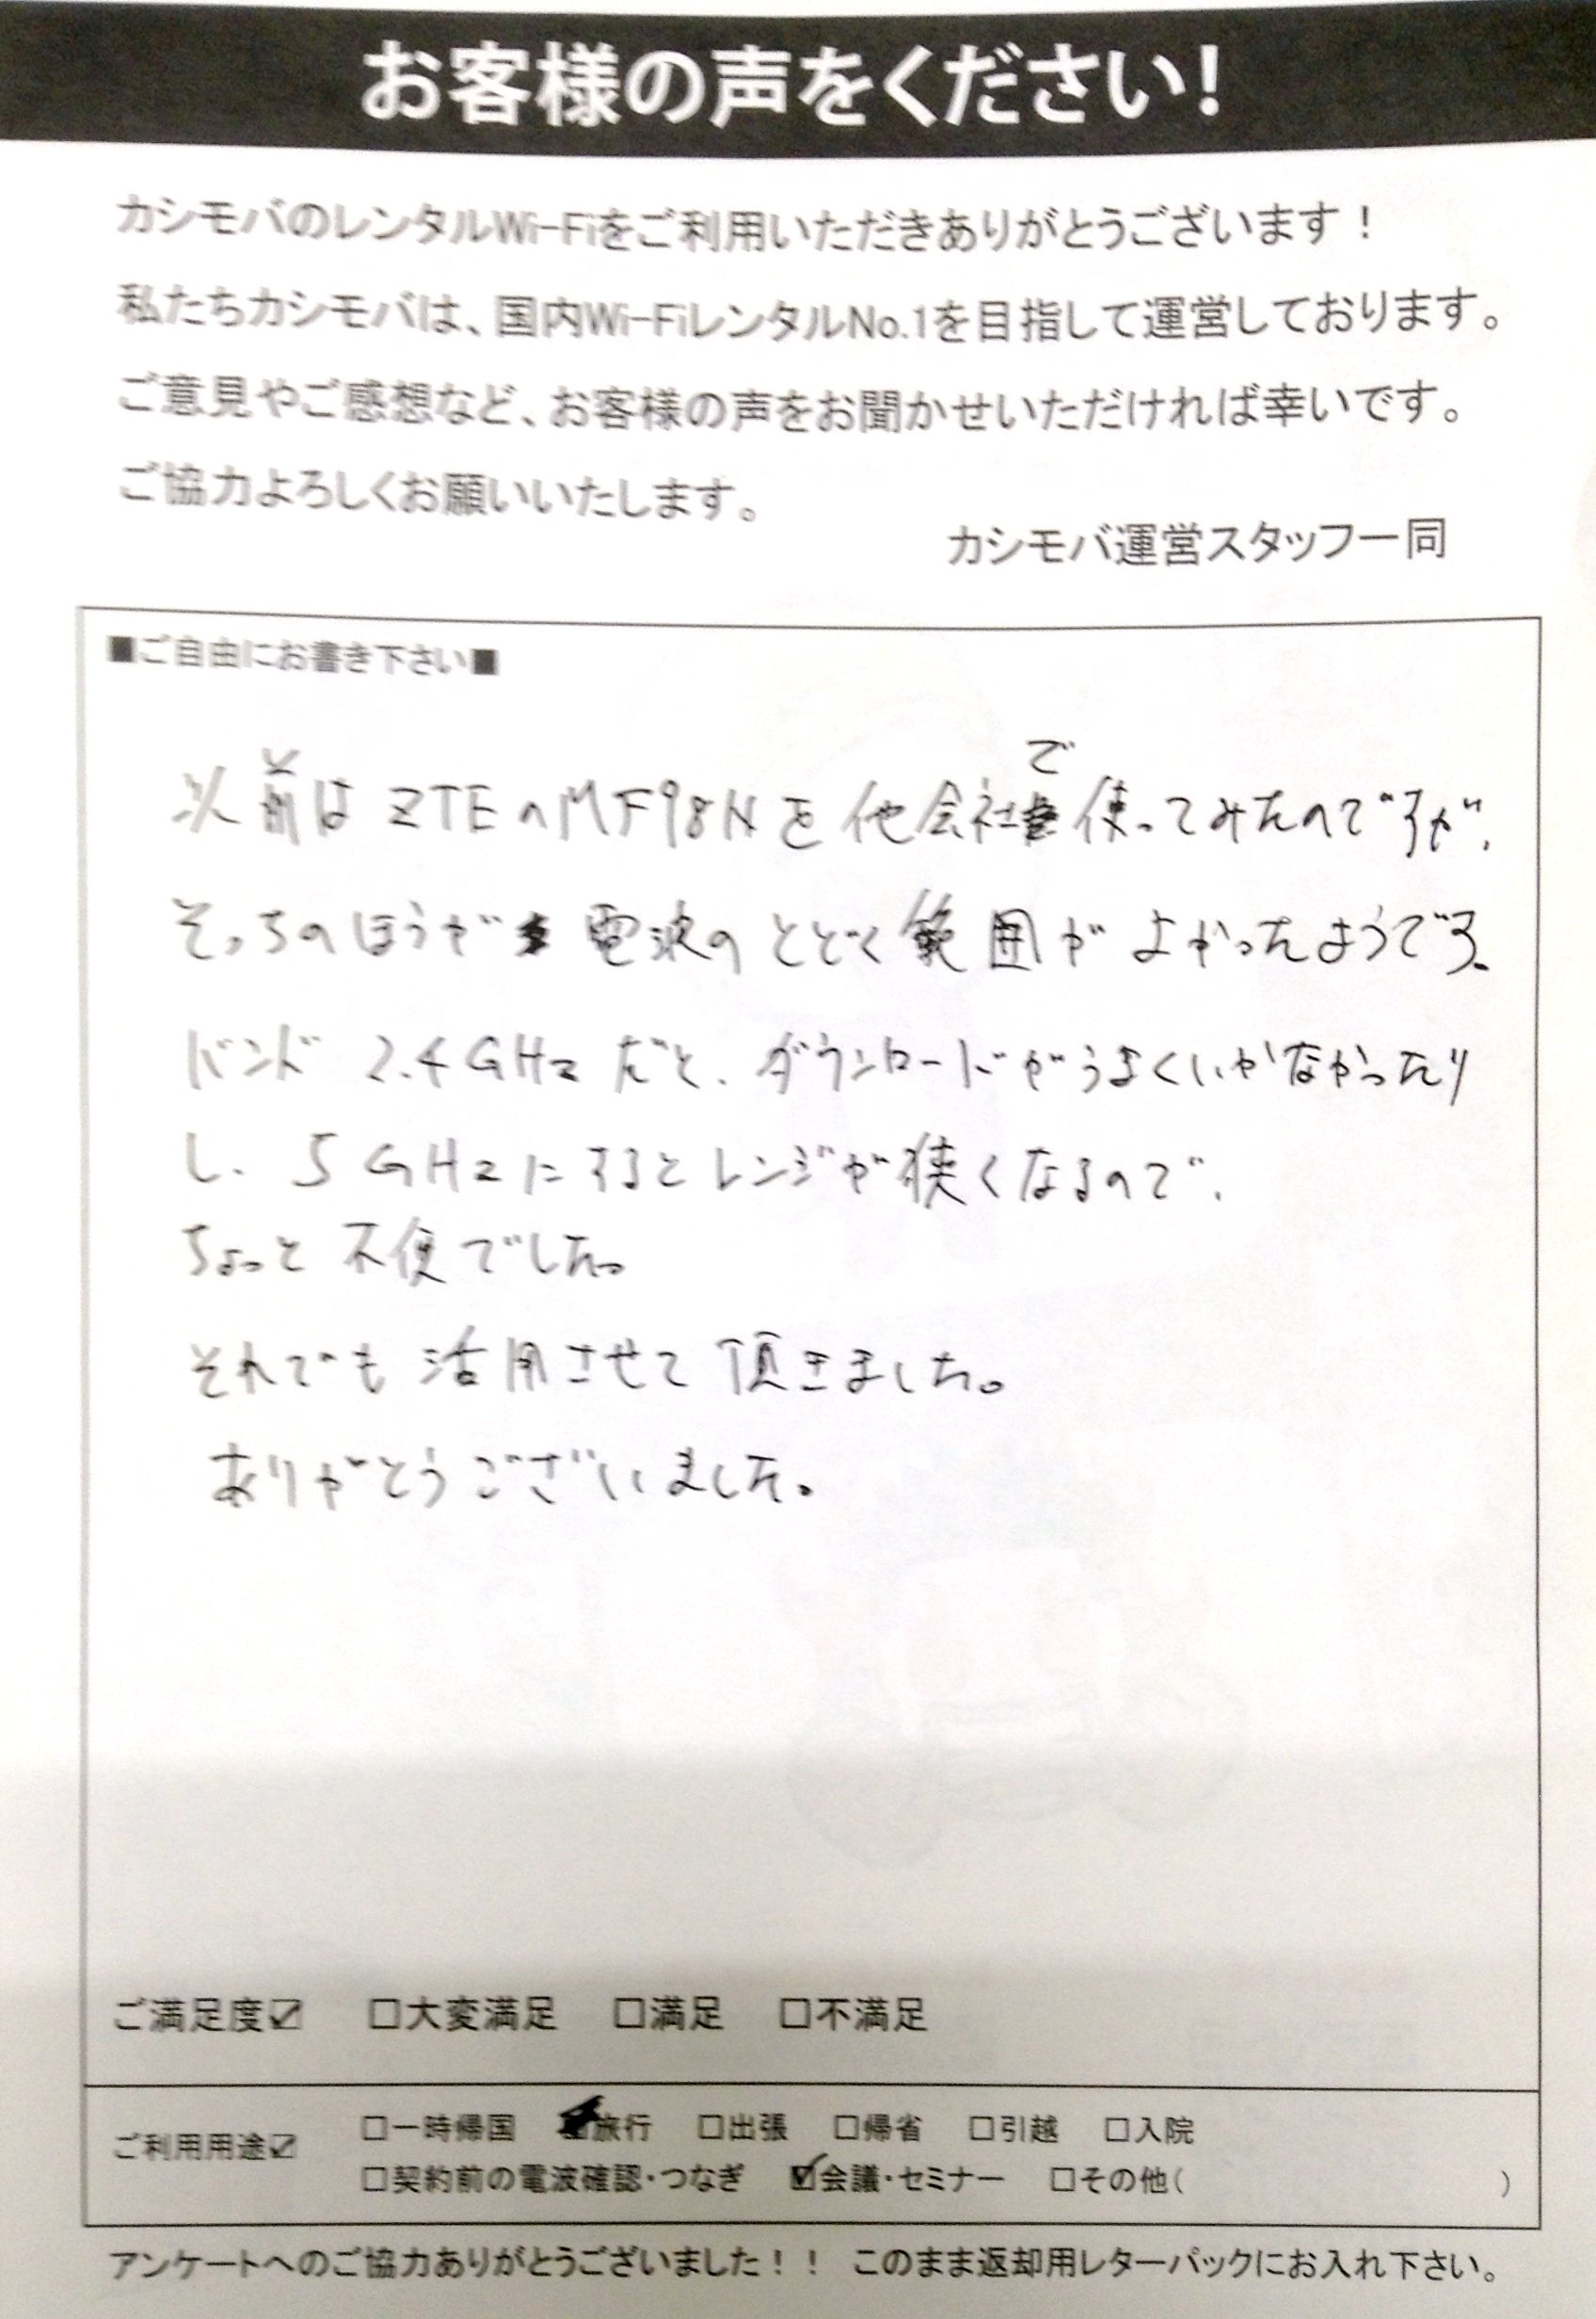 お客様の声をください!
カシモバのレンタルWi-Fiをご利用いただきありがとうございます!
私たちカシモバは、国内Wi-FiレンタルNo.1を目指して運営しております。
ご意見やご感想など、お客様の声をお聞かせいただければ幸いです。
ご協力よろしくお願いいたします。
カシモバ運営スタッフ一同
■ご自由にお書き下さい■
以前はZTEのMF98Nを他会社で使ってみたのですが、
そっちのほうが電波のとどく範囲がよかったようです。
バンド 2.4GHzだと、ダウンロードがうまくいかなかったり
し、5GHzにするとレンジが狭くなるので、
ちょっと不便でした。
それでも活用させて頂きました。
ありがとうございました。
ご満足度☑ □大変満足 □満足 □不満足
ご利用用途☑ □一時帰国 ■旅行 □出張 □帰省 □引越 □入院
□契約前の電波確認・つなぎ ☑会議・セミナー □その他( )
アンケートへのご協力ありがとうございました!! このまま返却用レターパックにお入れ下さい。